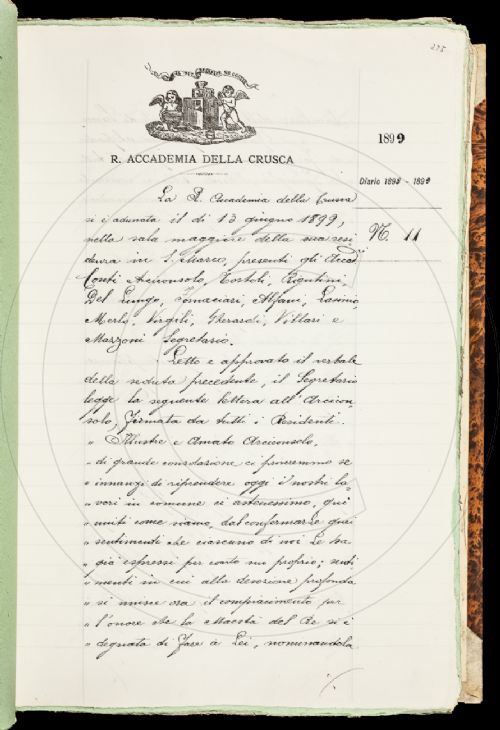 275
R. ACCADEMIA DELLA CRUSCA
1899
Diario 1898 - 1899
N. 11
La R. Accademia della Crusca
si è adunata il dì 13 giugno 1899,
nella sala maggiore della sua resi
denza in S. Marco, presenti gli Accad.ci
Conti Arciconsolo, Tortoli, Rigutini,
Del Lungo, Tomaciari, Alfani, Lasinio,
Merlo, Virgili, Gherardi, Villari e
Mazzoni Segretario.
Letto e approvato il verbale
della seduta precedente, il Segretario
legge la seguente lettera all'Arcicon
solo, firmata da tutti i Residenti.
" Illustre e Amato Arciconsolo,
" di grande consolazione ci priveremmo se
" innanzi di riprendere oggi i nostri la-
" vori in comune ci astenessimo, qui
" uniti come siamo, dal confermarle quei
" sentimenti che ciascuno di noi Le ha
" già espressi per conto suo proprio; senti
" menti in cui alla devozione profonda
" si unisce ora il compiacimento per
" l'onore che la Maestà del Re si è
" degnata di fare a Lei, nominandola